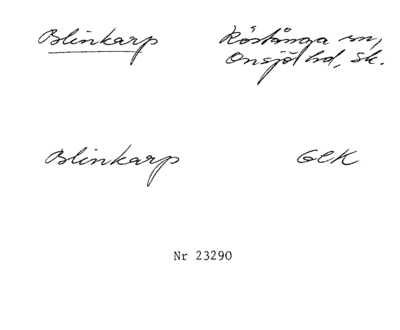 Blinkarp Röstånga sn,
Onsjö hd, Sk.
Blinkarp GEK
Nr 23290